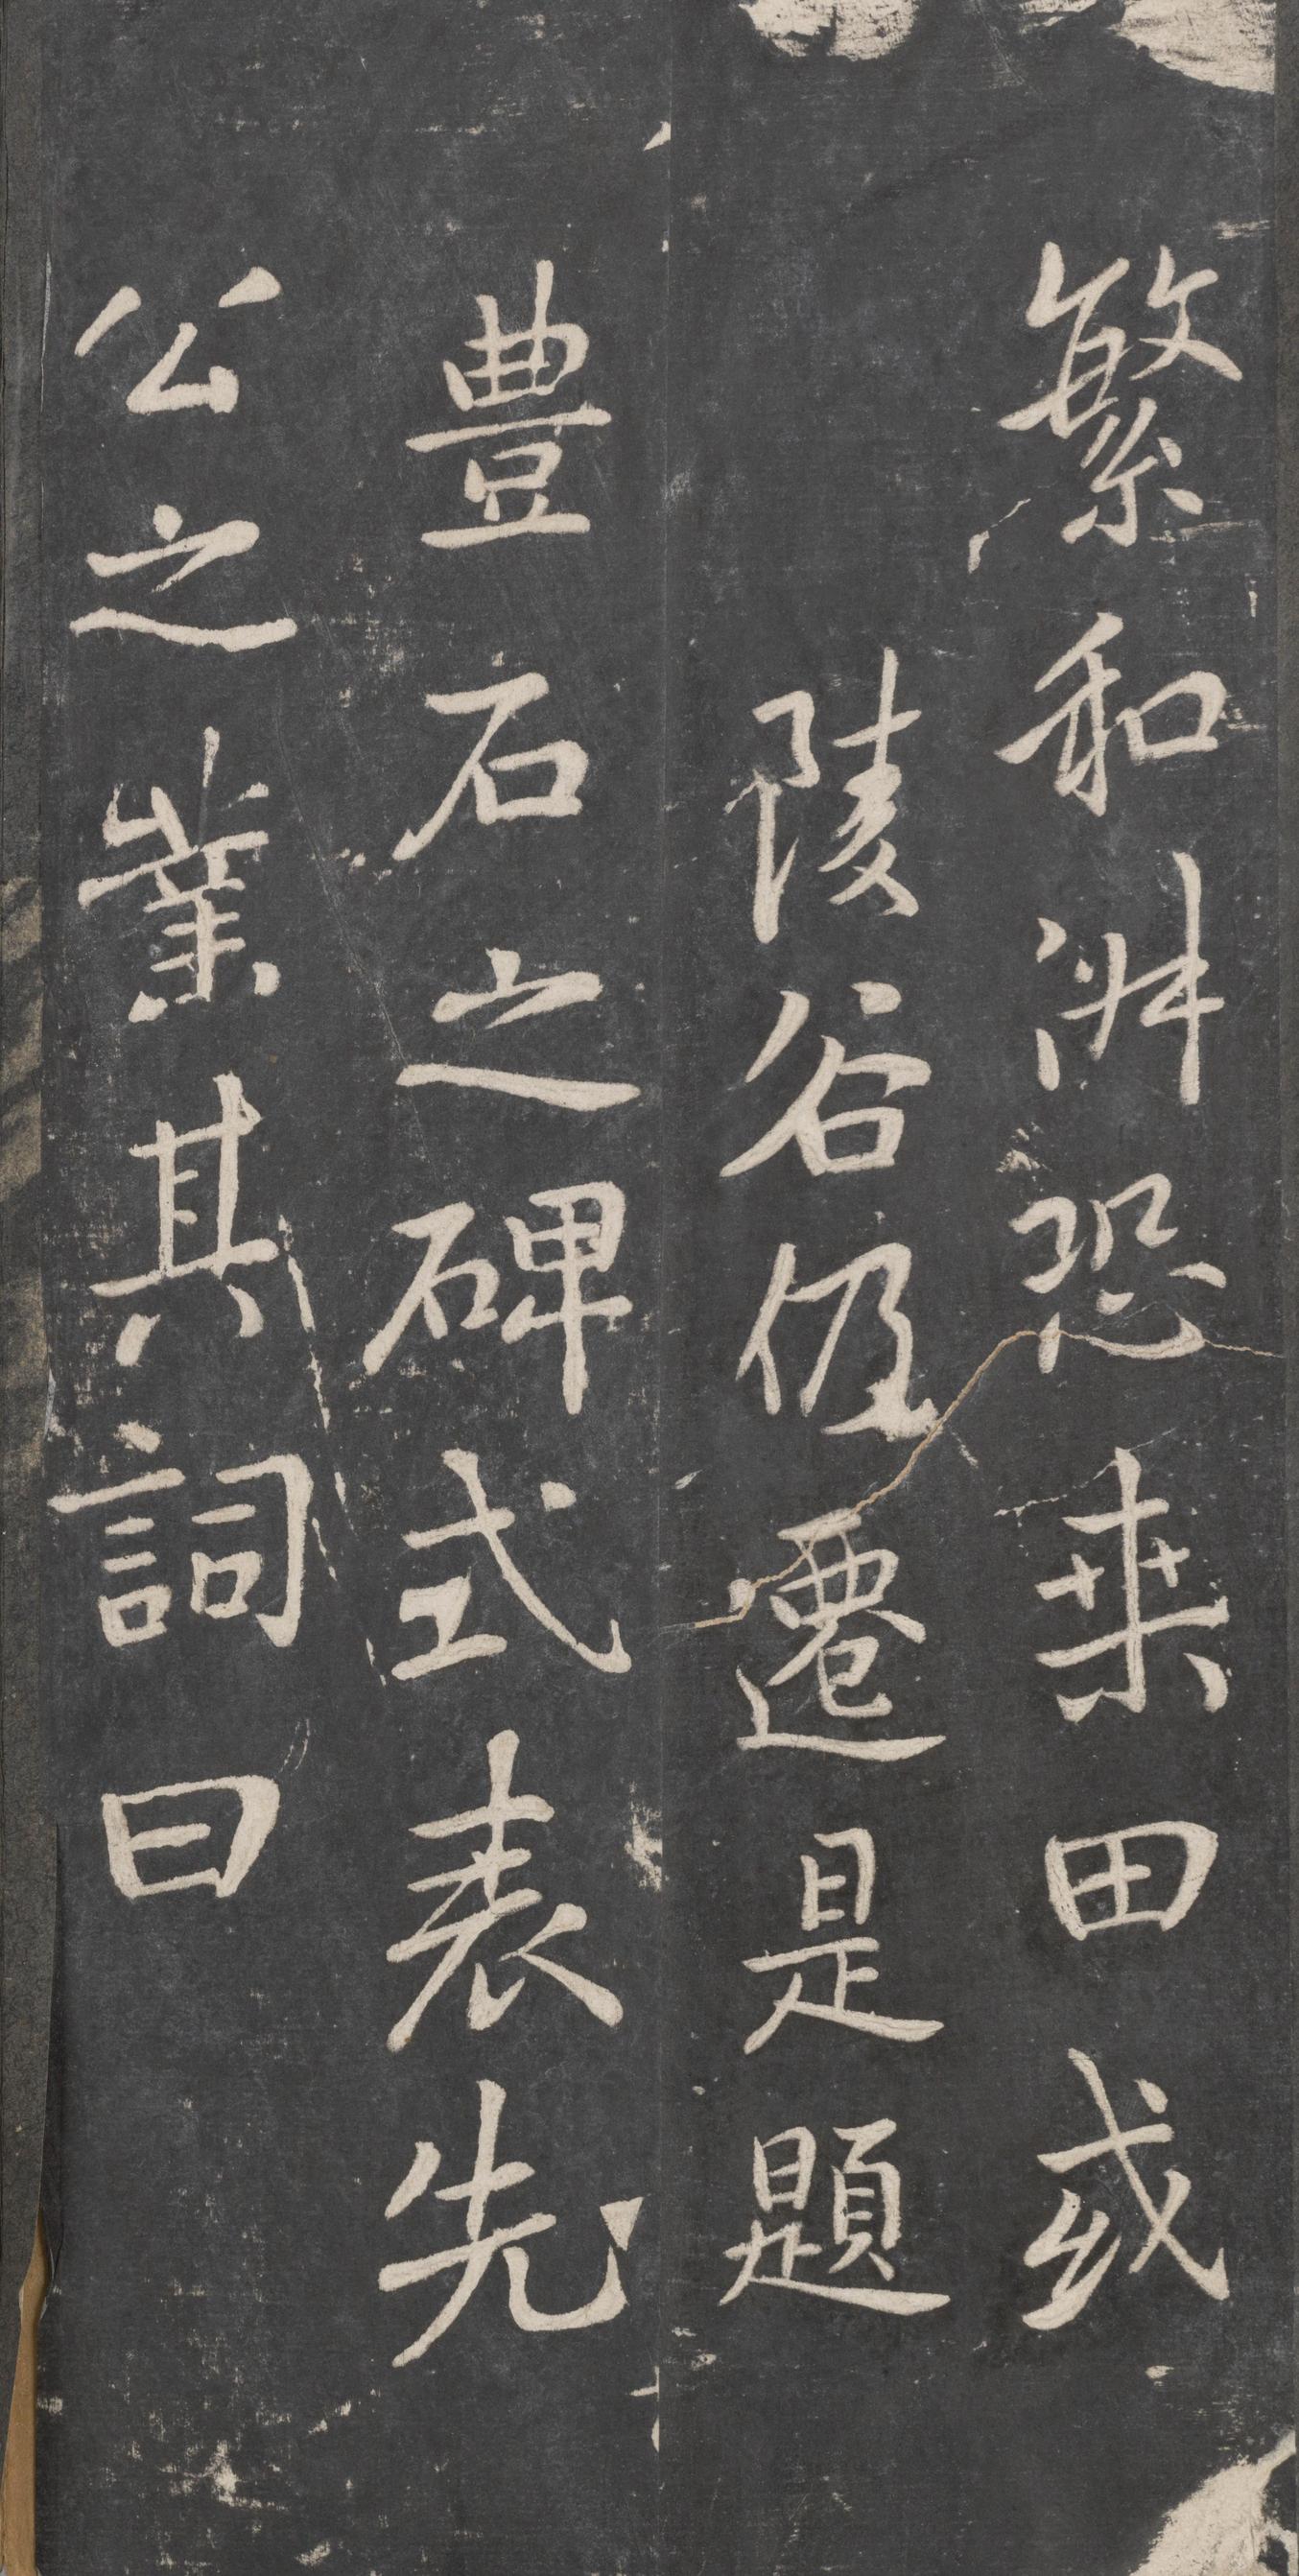 繁和恐桒田或
陵谷仍遷是題
豊石之碑式表先
公之業其詞曰